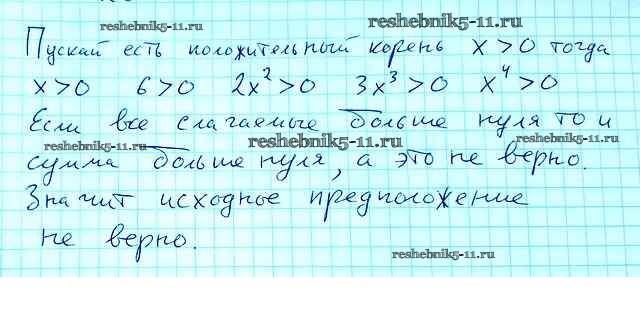 reshebnik5-11.ru
reshebnik5-11.ru
Пускай есть положительный корень x > 0 тогда
x > 0 6 > 0 2x² > 0 3x³ > 0 x⁴ > 0
Если все слагаемые больше нуля то и
reshebnik5-11.ru
reshebnik5-11.ru
reshebnik5-11.ru
сумма больше нуля, а это не верно.
Значит исходное предположение
не верно.
reshebnik5-11.ru